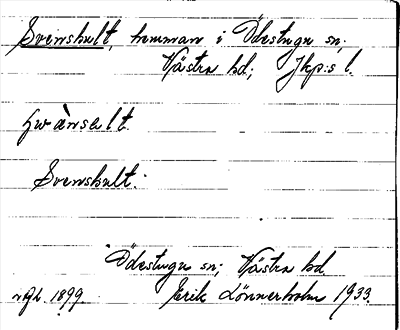 Svenshult, hemman i Ödestugu sn;
Västra hd; Jkp:s l.
Svenshult.
Ödestugu sn; Västra hd
1899 Erik Lönnerholm 1933.